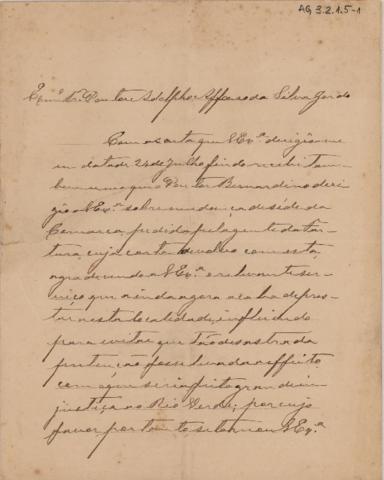 AG.3.2.1.5-1
Exmo. Sr. Doutor Adolpho Affonso da Silva Gordo
Com a carta que V Exª. dirigio-me
em data de 24 de Julho findo recebi tam-
bem uma que o Doutor Bernardino diri-
gio a V Exª. sobre mudança de séde da
Comarca, pedida pela gente da
cuja carta devolvo com esta,
agradecendo a V Exª. o relevante ser-
viço que ainda agora acaba de pres-
tar a esta localidade, influindo
para evitar que tão desastrada
pretenção fosse levada a effeito
com o que seria feita grande in-
justiça ao Rio Verde; por cujo
favor, por tanto se tornou V Exª.